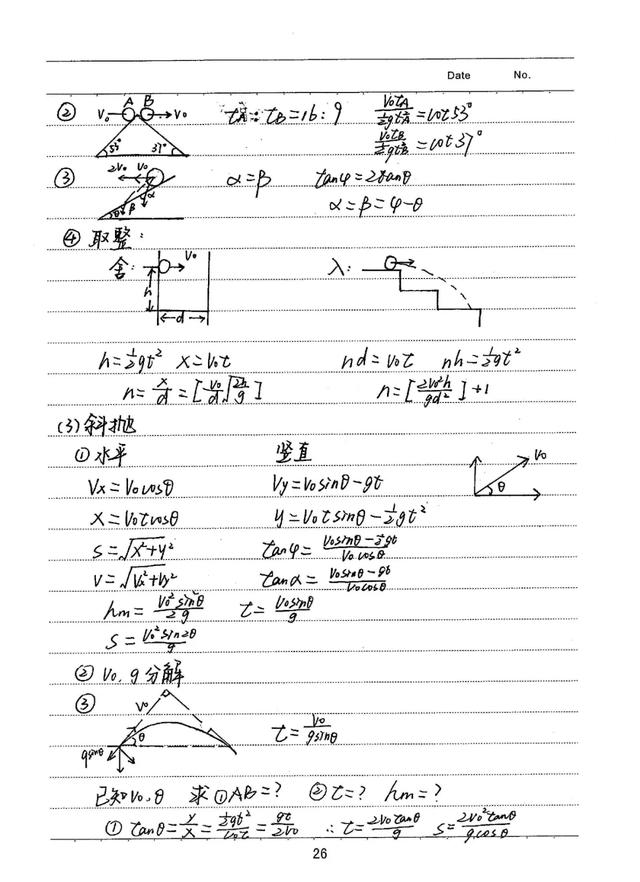 Date No.
② A B V₀ V₀ 53° 37° tA : tB = 16 : 9 V₀tA/½gtA² = cot53°
V₀tB/½gtB² = cot37°
③ 2V₀ V₀ θ β α α = β tanφ = 2tanθ
α = β = φ - θ
④ 取整:
舍: V₀ h d 入:
h = ½gt² x = V₀t nd = V₀t nh = ½gt²
n = x/d = [V₀/d √(2h/g)] n = [2V₀²h/gd²] + 1
(3) 斜抛
① 水平 竖直 V₀ θ
Vx = V₀cosθ Vy = V₀sinθ - gt
x = V₀tcosθ y = V₀tsinθ - ½gt²
s = √(x²+y²) tanφ = (V₀sinθ - ½gt)/(V₀cosθ)
v = √(Vx²+Vy²) tanα = (V₀sinθ - gt)/(V₀cosθ)
hm = V₀²sin²θ/2g t = V₀sinθ/g
s = V₀²sin2θ/g
② V₀, g 分解
③ V₀ θ gsinθ t = V₀/gsinθ
已知V₀, θ 求 ① AB = ? ② t = ? hm = ?
① tanθ = y/x = ½gt²/V₀t = gt/2V₀ ∴ t = 2V₀tanθ/g s = 2V₀²tanθ/g.cosθ
26